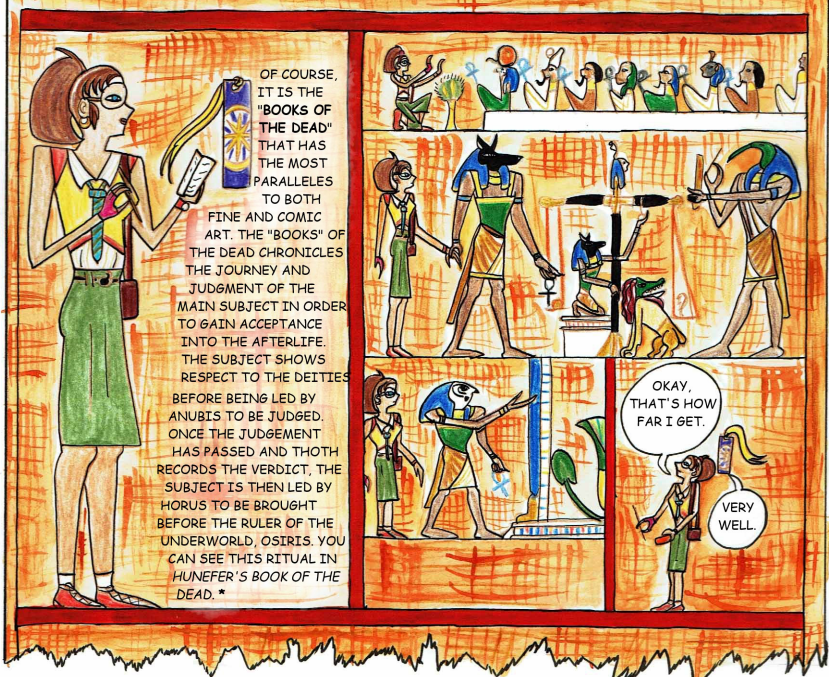 OF COURSE,
IT IS THE
"BOOKS OF
THE DEAD"
THAT HAS
THE MOST
PARALLELES
TO BOTH
FINE AND COMIC
ART. THE "BOOKS" OF
THE DEAD CHRONICLES
THE JOURNEY AND
JUDGMENT OF THE
MAIN SUBJECT IN ORDER
TO GAIN ACCEPTANCE
INTO THE AFTERLIFE.
THE SUBJECT SHOWS
RESPECT TO THE DEITIES
BEFORE BEING LED BY
ANUBIS TO BE JUDGED.
ONCE THE JUDGEMENT
HAS PASSED AND THOTH
RECORDS THE VERDICT, THE
SUBJECT IS THEN LED BY
HORUS TO BE BROUGHT
BEFORE THE RULER OF THE
UNDERWORLD, OSIRIS. YOU
CAN SEE THIS RITUAL IN
HUNEFER'S BOOK OF THE
DEAD. *
OKAY,
THAT'S HOW
FAR I GET.
VERY
WELL.